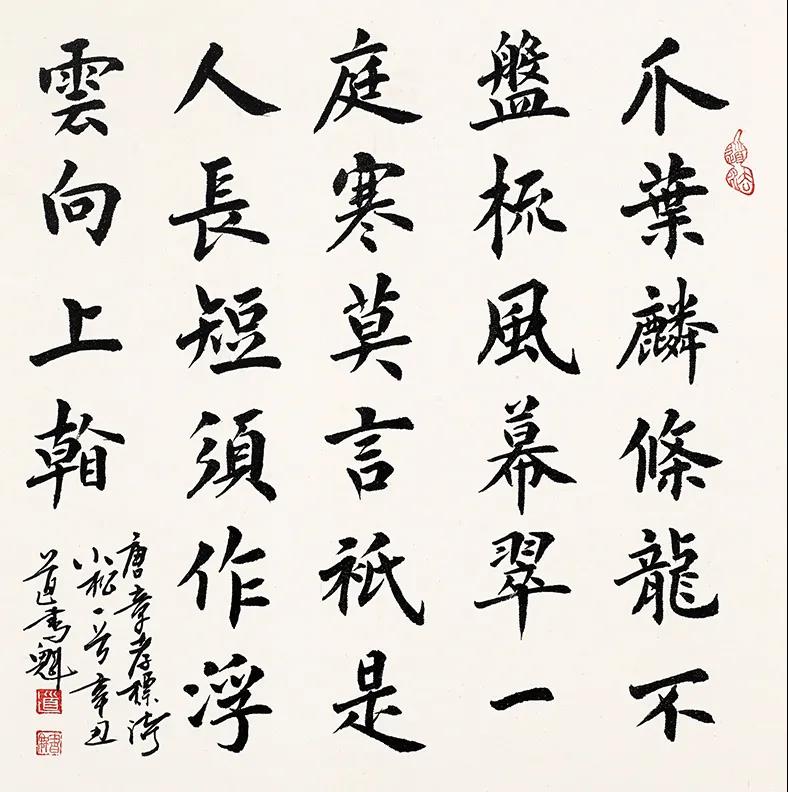 爪葉麟條龍不
盤梳風幕翠一
庭寒莫言祇是
人長短須作浮
雲向上
唐章孝標詩
小松一首辛丑
道書魁